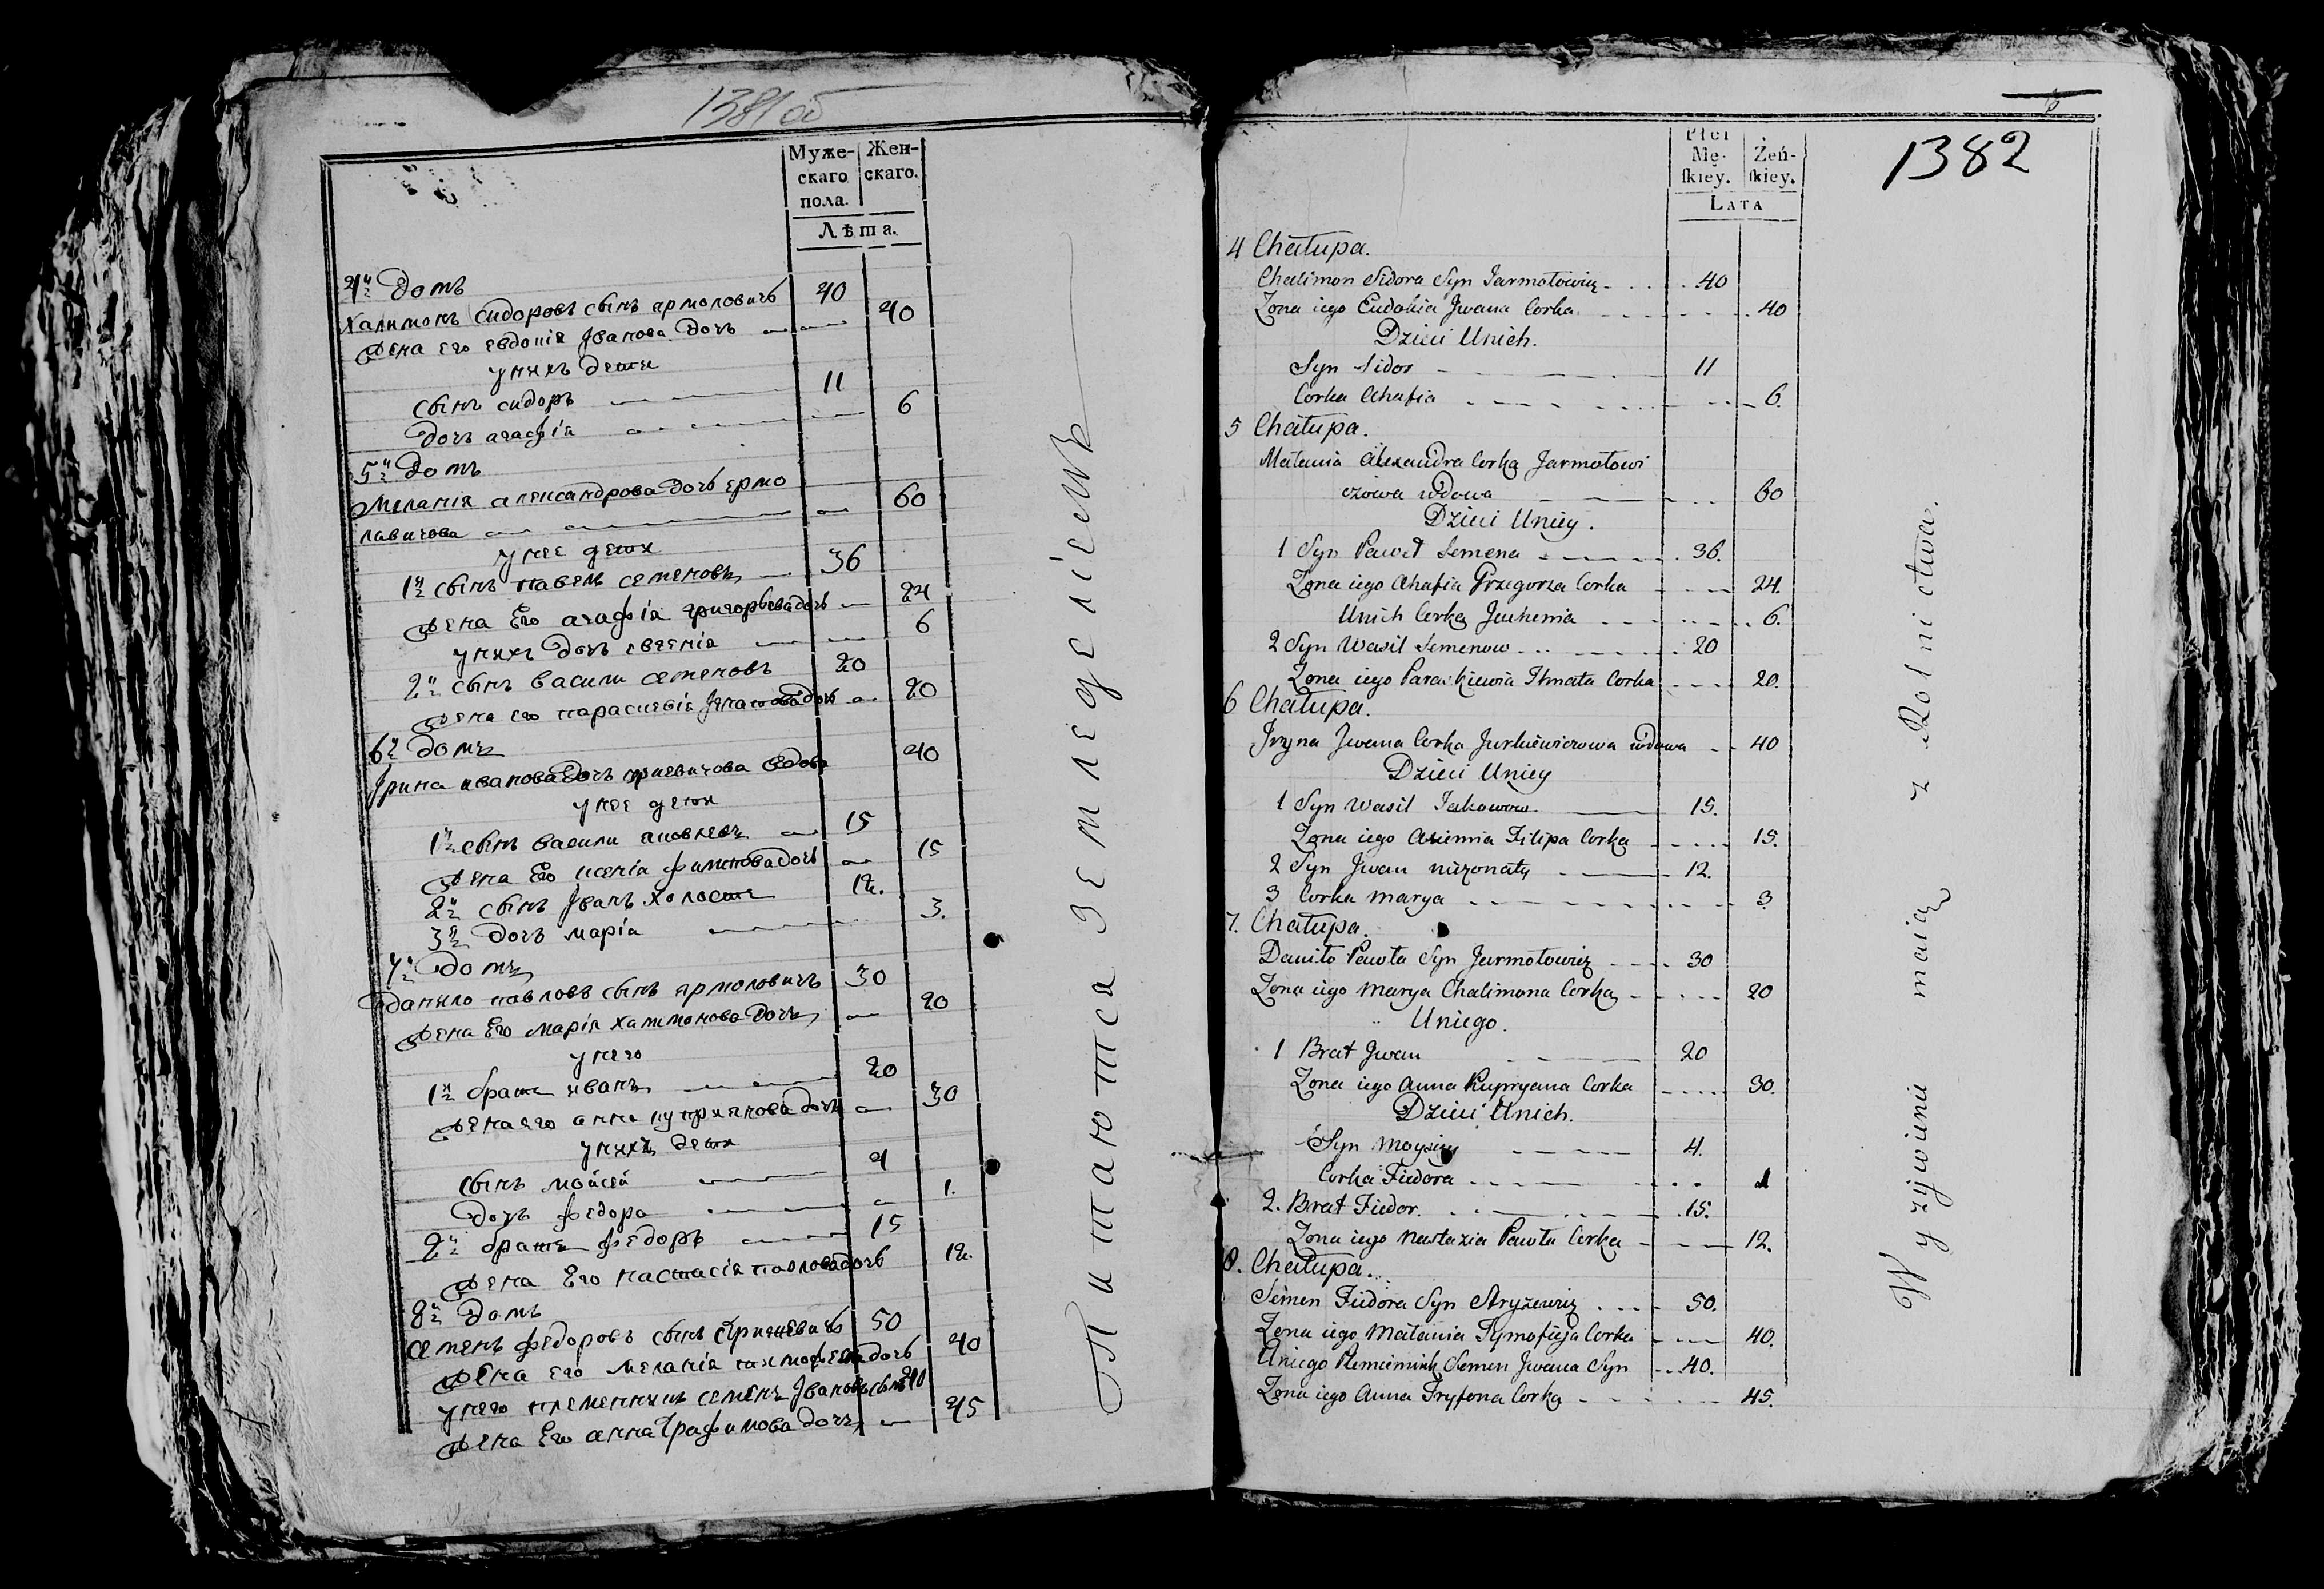 1381 об
Муже-
скаго
пола.
Жен-
скаго.
Лѣта.
4й Домъ
Халимонъ Сидоровъ сынъ ярмоловичь 40
Жена его евдокія Іванова Дочь 40
у нихъ дети
сынъ сидоръ 11
Дочь агафія 6
5й Домъ
Меланія александрова Дочь ермо
лавичова 60
у нее дети
1й сынъ павелъ семеновъ 36
Жена Его агафія григорьева дочь 24
у нихъ Дочь евгенія 6
2й сынъ василии семеновъ 20
Жена его параскевія Ігнатова дочь 20
6й Домъ
Ірина иванова Дочь юркевичова вдова 40
у нее дети
1й сынъ василии яковлевъ 15
Жена Его ксенія филипова дочь 15
2й сынъ Іванъ холостъ 12.
3я Дочь марія 3.
7й Домъ
Данило павловъ сынъ ярмоловичъ 30
Жена Его марія халимонова Дочь 20
у него
1й братъ иванъ 20
Жена его анна куприянова дочь 30
у нихъ дети
сынъ мойсей 4
Дочь федора 1.
2й братъ федоръ 15
Жена Его настасія павлова дочь 12.
8й Домъ
Семенъ федоровъ сынъ Стрижевичь 50
Жена его меланія тимофеева дочь 40
у него племенникъ семенъ Івановъ сынъ 40
Жена Его анна Трафимова дочь 45
Питаются земледелиемъ
1382
Płci
Mę-
ſkiey.
Żeń-
ſkiey.
LATA
4 Chałupa.
Chalimon Sidora Syn Jarmołowicz 40
Zona iego Eudokia Jwana Corka 40
Dzieci Unich.
Syn Sidor 11
Corka Ahafia 6.
5 Chałupa.
Małania Alexandra Corka Jarmołowi
czowa wdowa 60
Dzieci Uniey.
1 Syn Paweł Semena 36.
Zona iego Ahafia Grzegorza Corka 24.
Unich Corka Jauhenia 6.
2 Syn Wasil Semenow 20
Zona iego Paraskiewia Ihnata Corka 20.
6 Chałupa.
Jryna Jwana Corka Jurkiewiczowa wdowa 40
Dzieci Uniey
1 Syn Wasil Jakowow 15.
Zona iego Axienia Filipa Corka 15.
2 Syn Jwan nieżonaty 12.
3 Corka Marya 3
7. Chałupa.
Daniło Pawła Syn Jarmołowicz 30
Zona iego Marya Chalimona Corka 20
Uniego.
1 Brat Jwan 20
Zona iego Anna Kupryana Corka 30.
Dzieci Unich.
Syn Moysiey 4.
Corka Fiedora 1
2. Brat Fiedor. 15.
Zona iego Nastazia Pawła Corka 12.
8. Chałupa.
Semen Fiedora Syn Stryżewicz 50.
Zona iego Małania Tymofieja Corka 40.
Uniego Plemiennik Semen Jwana Syn 40.
Zona iego Anna Tryfona Corka 45.
Wyżywienie maią z Rolnictwa.